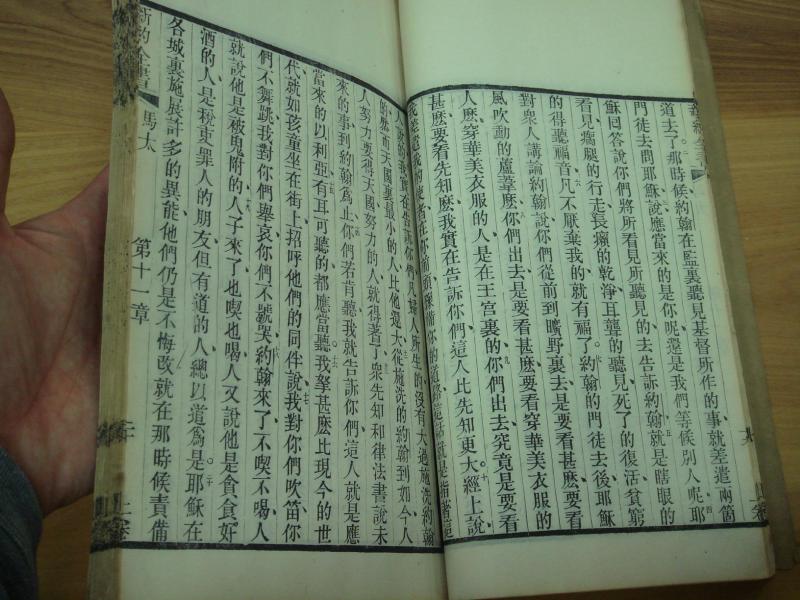 道去了。那時候約翰在監裏聽見基督所作的事就差遣兩箇
門徒去問耶穌說應當來的是你呢還是我們等候別人呢耶
穌囘答說你們將所看見所聽見的去告訴約翰就是瞎眼的
看見瘸腿的行走長癩的乾淨耳聾的聽見死了的復活貧窮
的得聽福音凡不厭棄我的就有福了約翰的門徒去後耶穌
對衆人講論約翰說你們從前到曠野裏去是要看甚麽要看
風吹動的蘆葦麽你們出去是要看甚麽要看穿華美衣服的
人麽穿華美衣服的人是在王宫裏的你們出去究竟是要看
甚麽要看先知麽我實在告訴你們這人比先知更大經上說
我差遣我的使者在你前頭預備你的道路這話就是指着這
人說的我實在告訴你們凡婦人所生的沒有大過施洗約翰
的然而天國裏最小的人比他還大從施洗的約翰到如今人
人努力要得天國努力的人就得着了衆先知和律法書說未
來的事到約翰爲止你們若肯聽我就告訴你們這人就是應
當來的以利亞有耳可聽的都應當聽我拏甚麽比現今的世
代就如孩童坐在街上招呼他們的同伴說我對你們吹笛你
們不舞跳我對你們舉哀你們不號哭約翰來了不喫不喝人
就說他是被鬼附的人子來了也喫也喝人又說他是貪食好
酒的人是稅吏罪人的朋友但有道的人總以道爲是。耶穌在
各城裏施展許多的異能他們仍是不悔改就在那時候責備
新約全書 馬太 第十一章 上卷